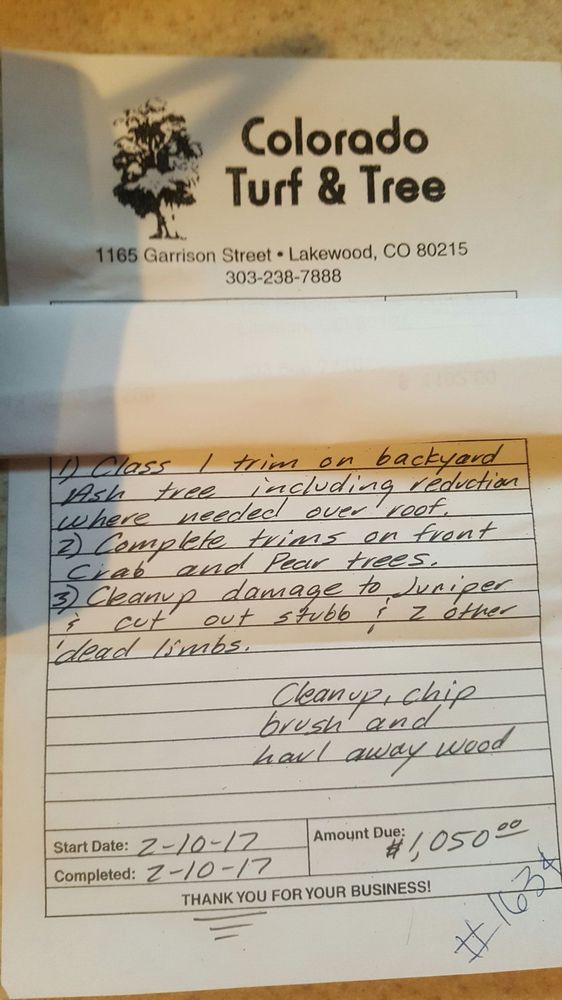 Colorado
Turf & Tree
1165 Garrison Street • Lakewood, CO 80215
303-238-7888
1) Class 1 trim on backyard
Ash tree including reduction
where needed over roof.
2) Complete trims on front
Crab and Pear trees.
3) Cleanup damage to Juniper
& cut out stubb & 2 other
dead limbs.
Cleanup, chip
brush and
haul away wood
Start Date: 2-10-17
Amount Due: $1,050.00
Completed: 2-10-17
THANK YOU FOR YOUR BUSINESS!
#1634